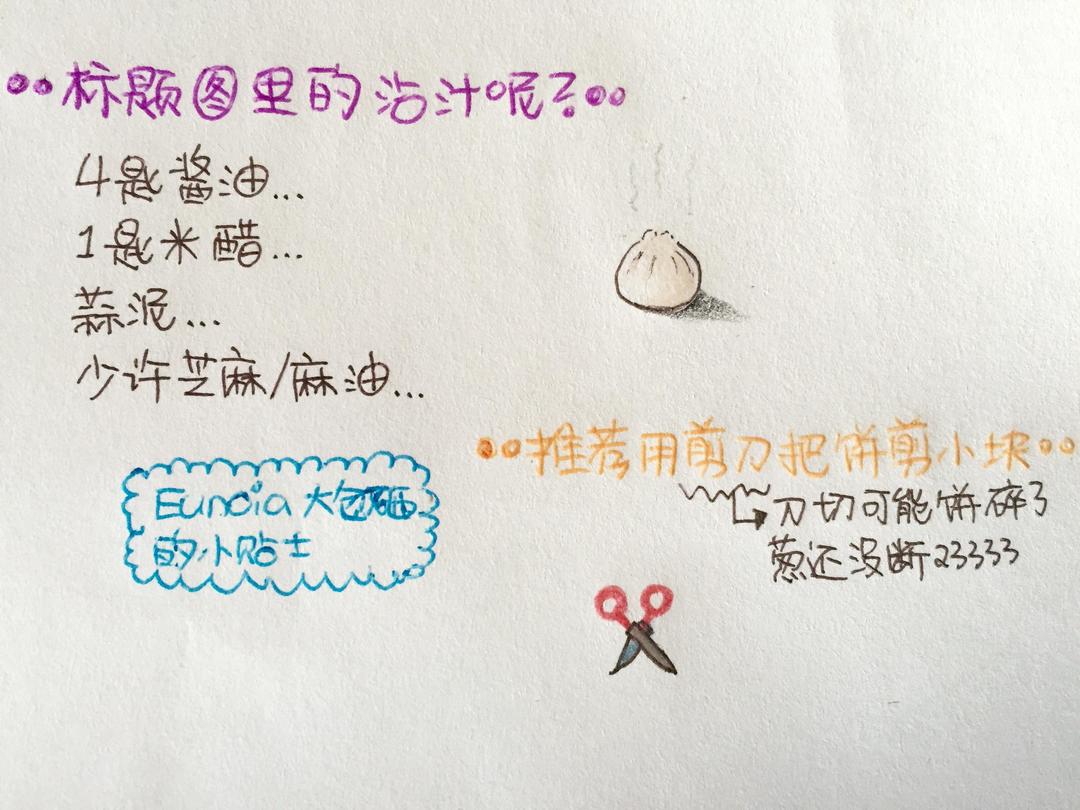 标题图里的沾汁呢?
4匙酱油...
1匙米醋...
蒜泥...
少许芝麻/麻油...
推荐用剪刀把饼剪小块
刀切可能饼碎了
葱还没断23333
Euncia大包
的小贴士